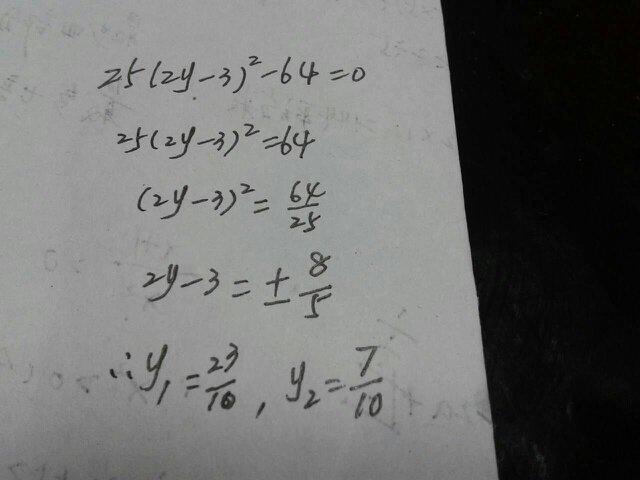 25(2y-3)²-64=0
25(2y-3)²=64
(2y-3)²=64/25
2y-3=±8/5
∴y₁=23/10, y₂=7/10